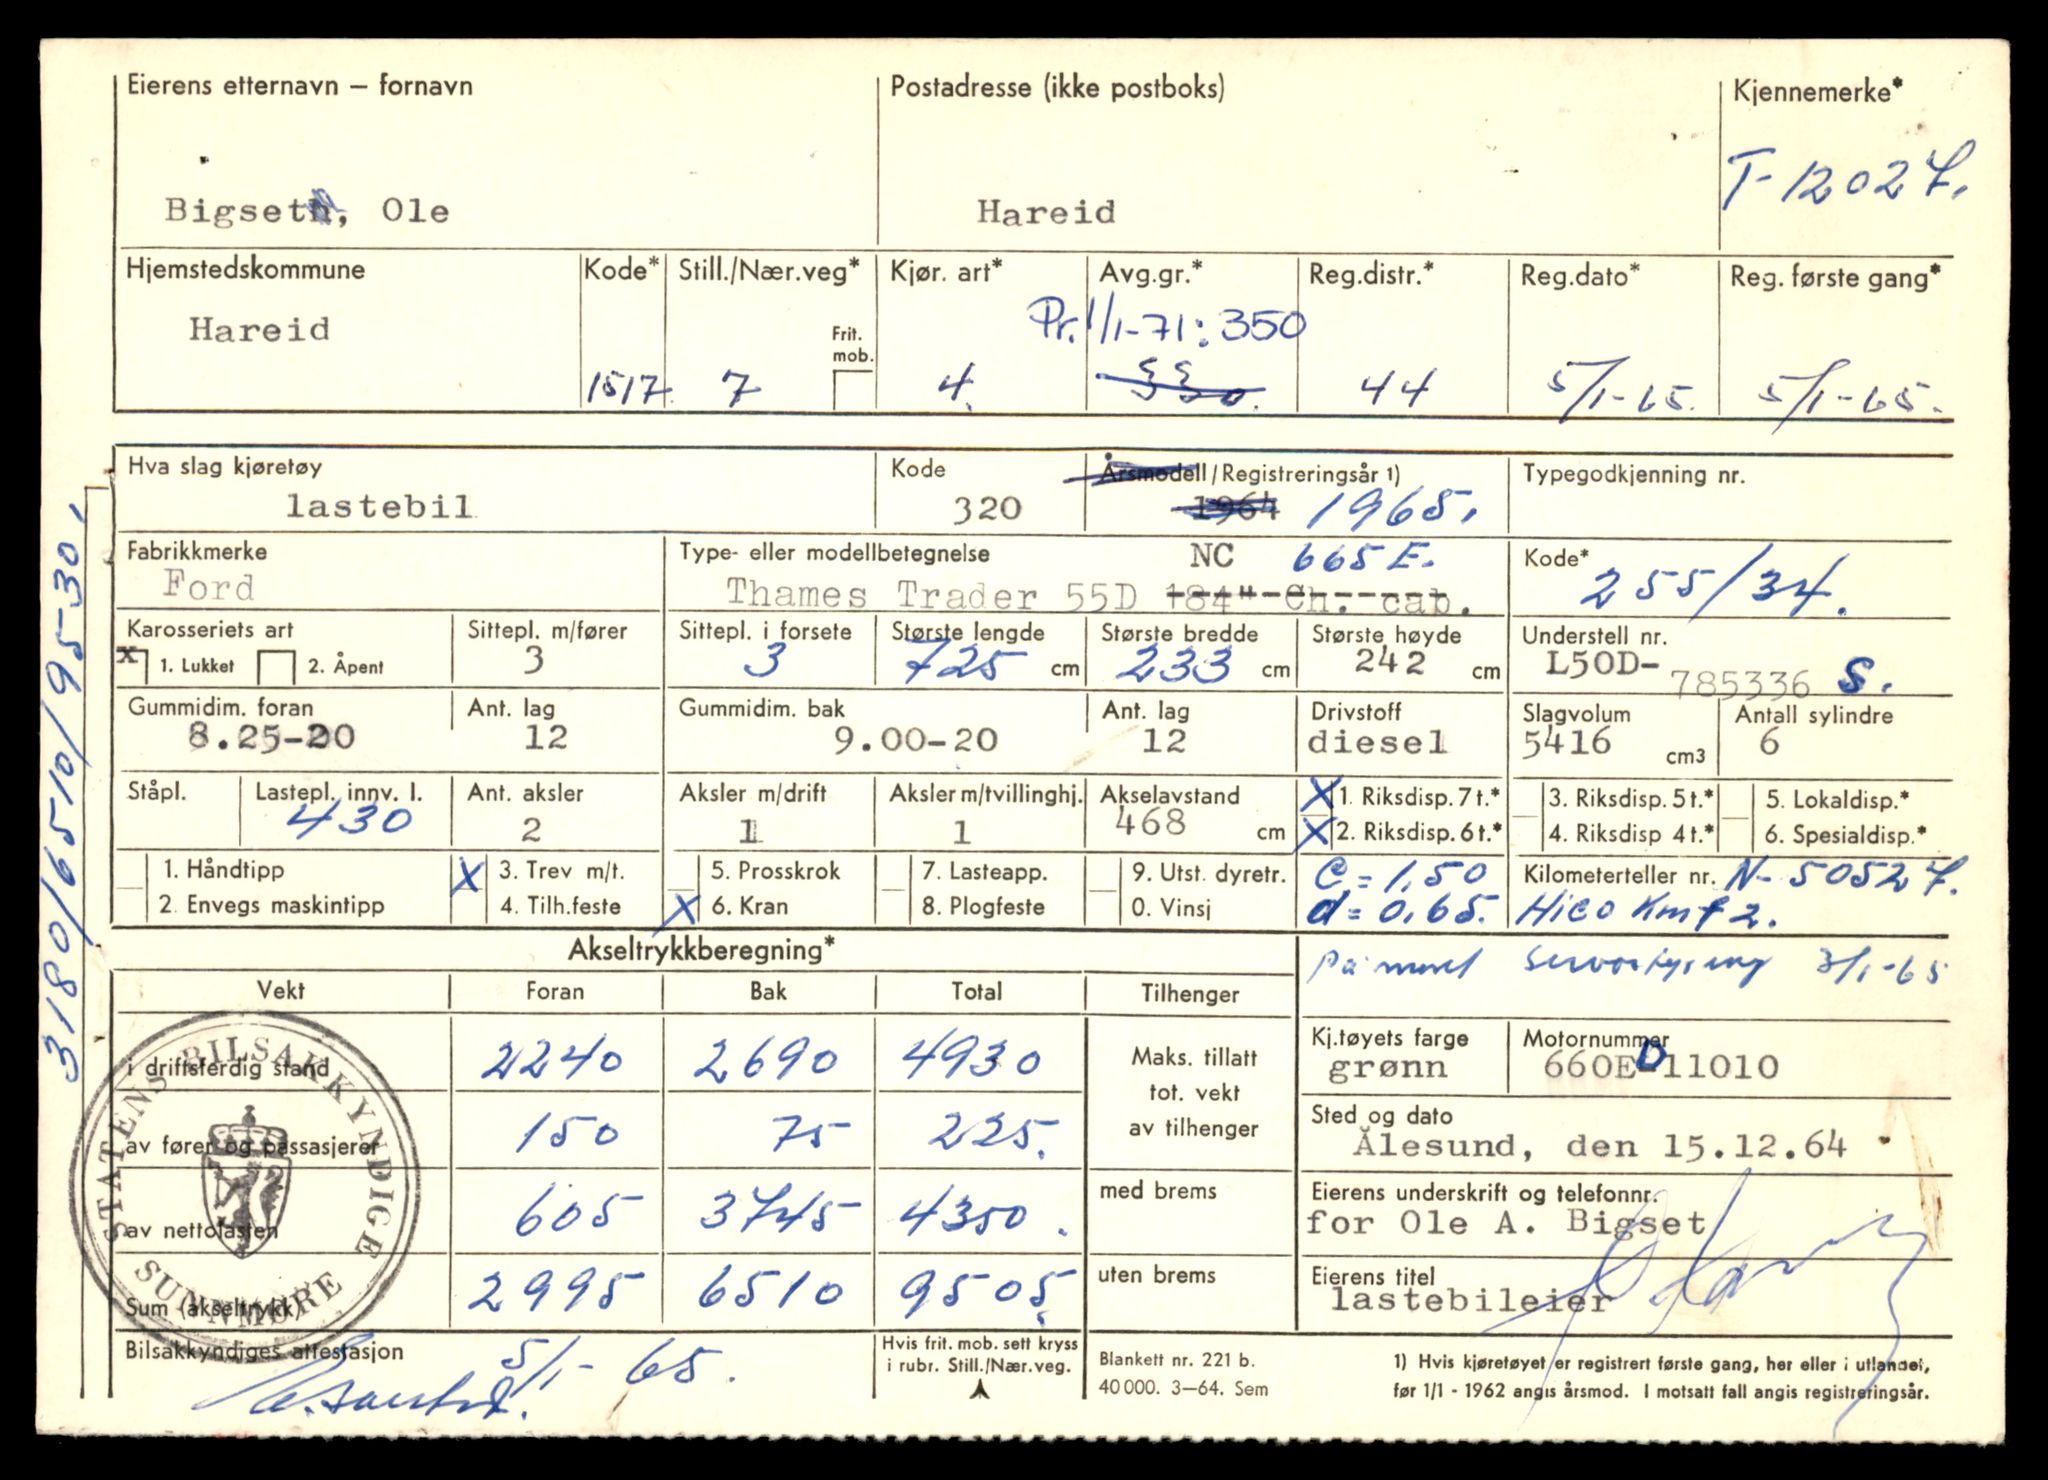 Eierens etternavn – fornavn
Postadresse (ikke postboks)
Kjennemerke*
T-12027.
Bigset, Ole
Hareid
Hjemstedskommune
Kode*
Still./Nær.veg*
Kjør. art*
Avg.gr.*
Reg.distr.*
Reg.dato*
Reg. første gang*
Hareid
1517
7
Frit. mob.
4.
Pr. 1/1-71: 350
330.
44
5/1-65.
5/1-65.
Hva slag kjøretøy
Kode
Årsmodell/Registreringsår 1)
Typegodkjenning nr.
lastebil
320
1964 1965.
Fabrikkmerke
Type- eller modellbetegnelse
NC 665E.
Kode*
Ford
Thames Trader 55D 184" Ch. cab.
255/34.
Karosseriets art
Sittepl. m/fører
Sittepl. i forsete
Største lengde
Største bredde
Største høyde
Understell nr.
x 1. Lukket 2. Åpent
3
3
725 cm
233 cm
242 cm
L50D-785336 S.
Gummidim. foran
Ant. lag
Gummidim. bak
Ant. lag
Drivstoff
Slagvolum
Antall sylindre
8.25-20
12
9.00-20
12
diesel
5416 cm3
6
Ståpl.
Lastepl. innv. l.
Ant. aksler
Aksler m/drift
Aksler m/tvillinghj.
Akselavstand
430
2
1
1
468 cm
X 1. Riksdisp. 7 t.*
3. Riksdisp. 5 t.*
5. Lokaldisp.*
X 2. Riksdisp. 6 t.*
4. Riksdisp 4 t.*
6. Spesialdisp.*
1. Håndtipp
X 3. Trev m/t.
5. Prosskrok
7. Lasteapp.
9. Utst. dyretr.
2. Envegs maskintipp
4. Tilh.feste
X 6. Kran
8. Plogfeste
0. Vinsj
C = 1,50
d = 0,65.
Kilometerteller nr. N-50527.
Hico Kmf 2.
Akseltrykkberegning*
påmont servostyring 3/1-65
Vekt
Foran
Bak
Total
Tilhenger
i driftsferdig stand
2240
2690
4930
av fører og passasjerer
150
75
225.
av nettolasten
605
3745
4350.
Sum (akseltrykk)
2995
6510
9505.
Maks. tillatt
tot. vekt
av tilhenger
med brems
uten brems
Kj.tøyets farge
Motornummer
grønn
660ED11010
Sted og dato
Ålesund, den 15.12.64
Eierens underskrift og telefonnr.
for Ole A. Bigset
Eierens titel
lastebileier
STATENS BILSAKKYNDIGE
SUNNMØRE
Bilsakkyndiges attestasjon
5/1-65.
Hvis frit. mob. sett kryss
i rubr. Still./Nær.veg.
Blankett nr. 221 b.
40 000. 3–64. Sem
1) Hvis kjøretøyet er registrert første gang, her eller i utlandet,
før 1/1 - 1962 angis årsmod. I motsatt fall angis registreringsår.
3180/6510/9530.